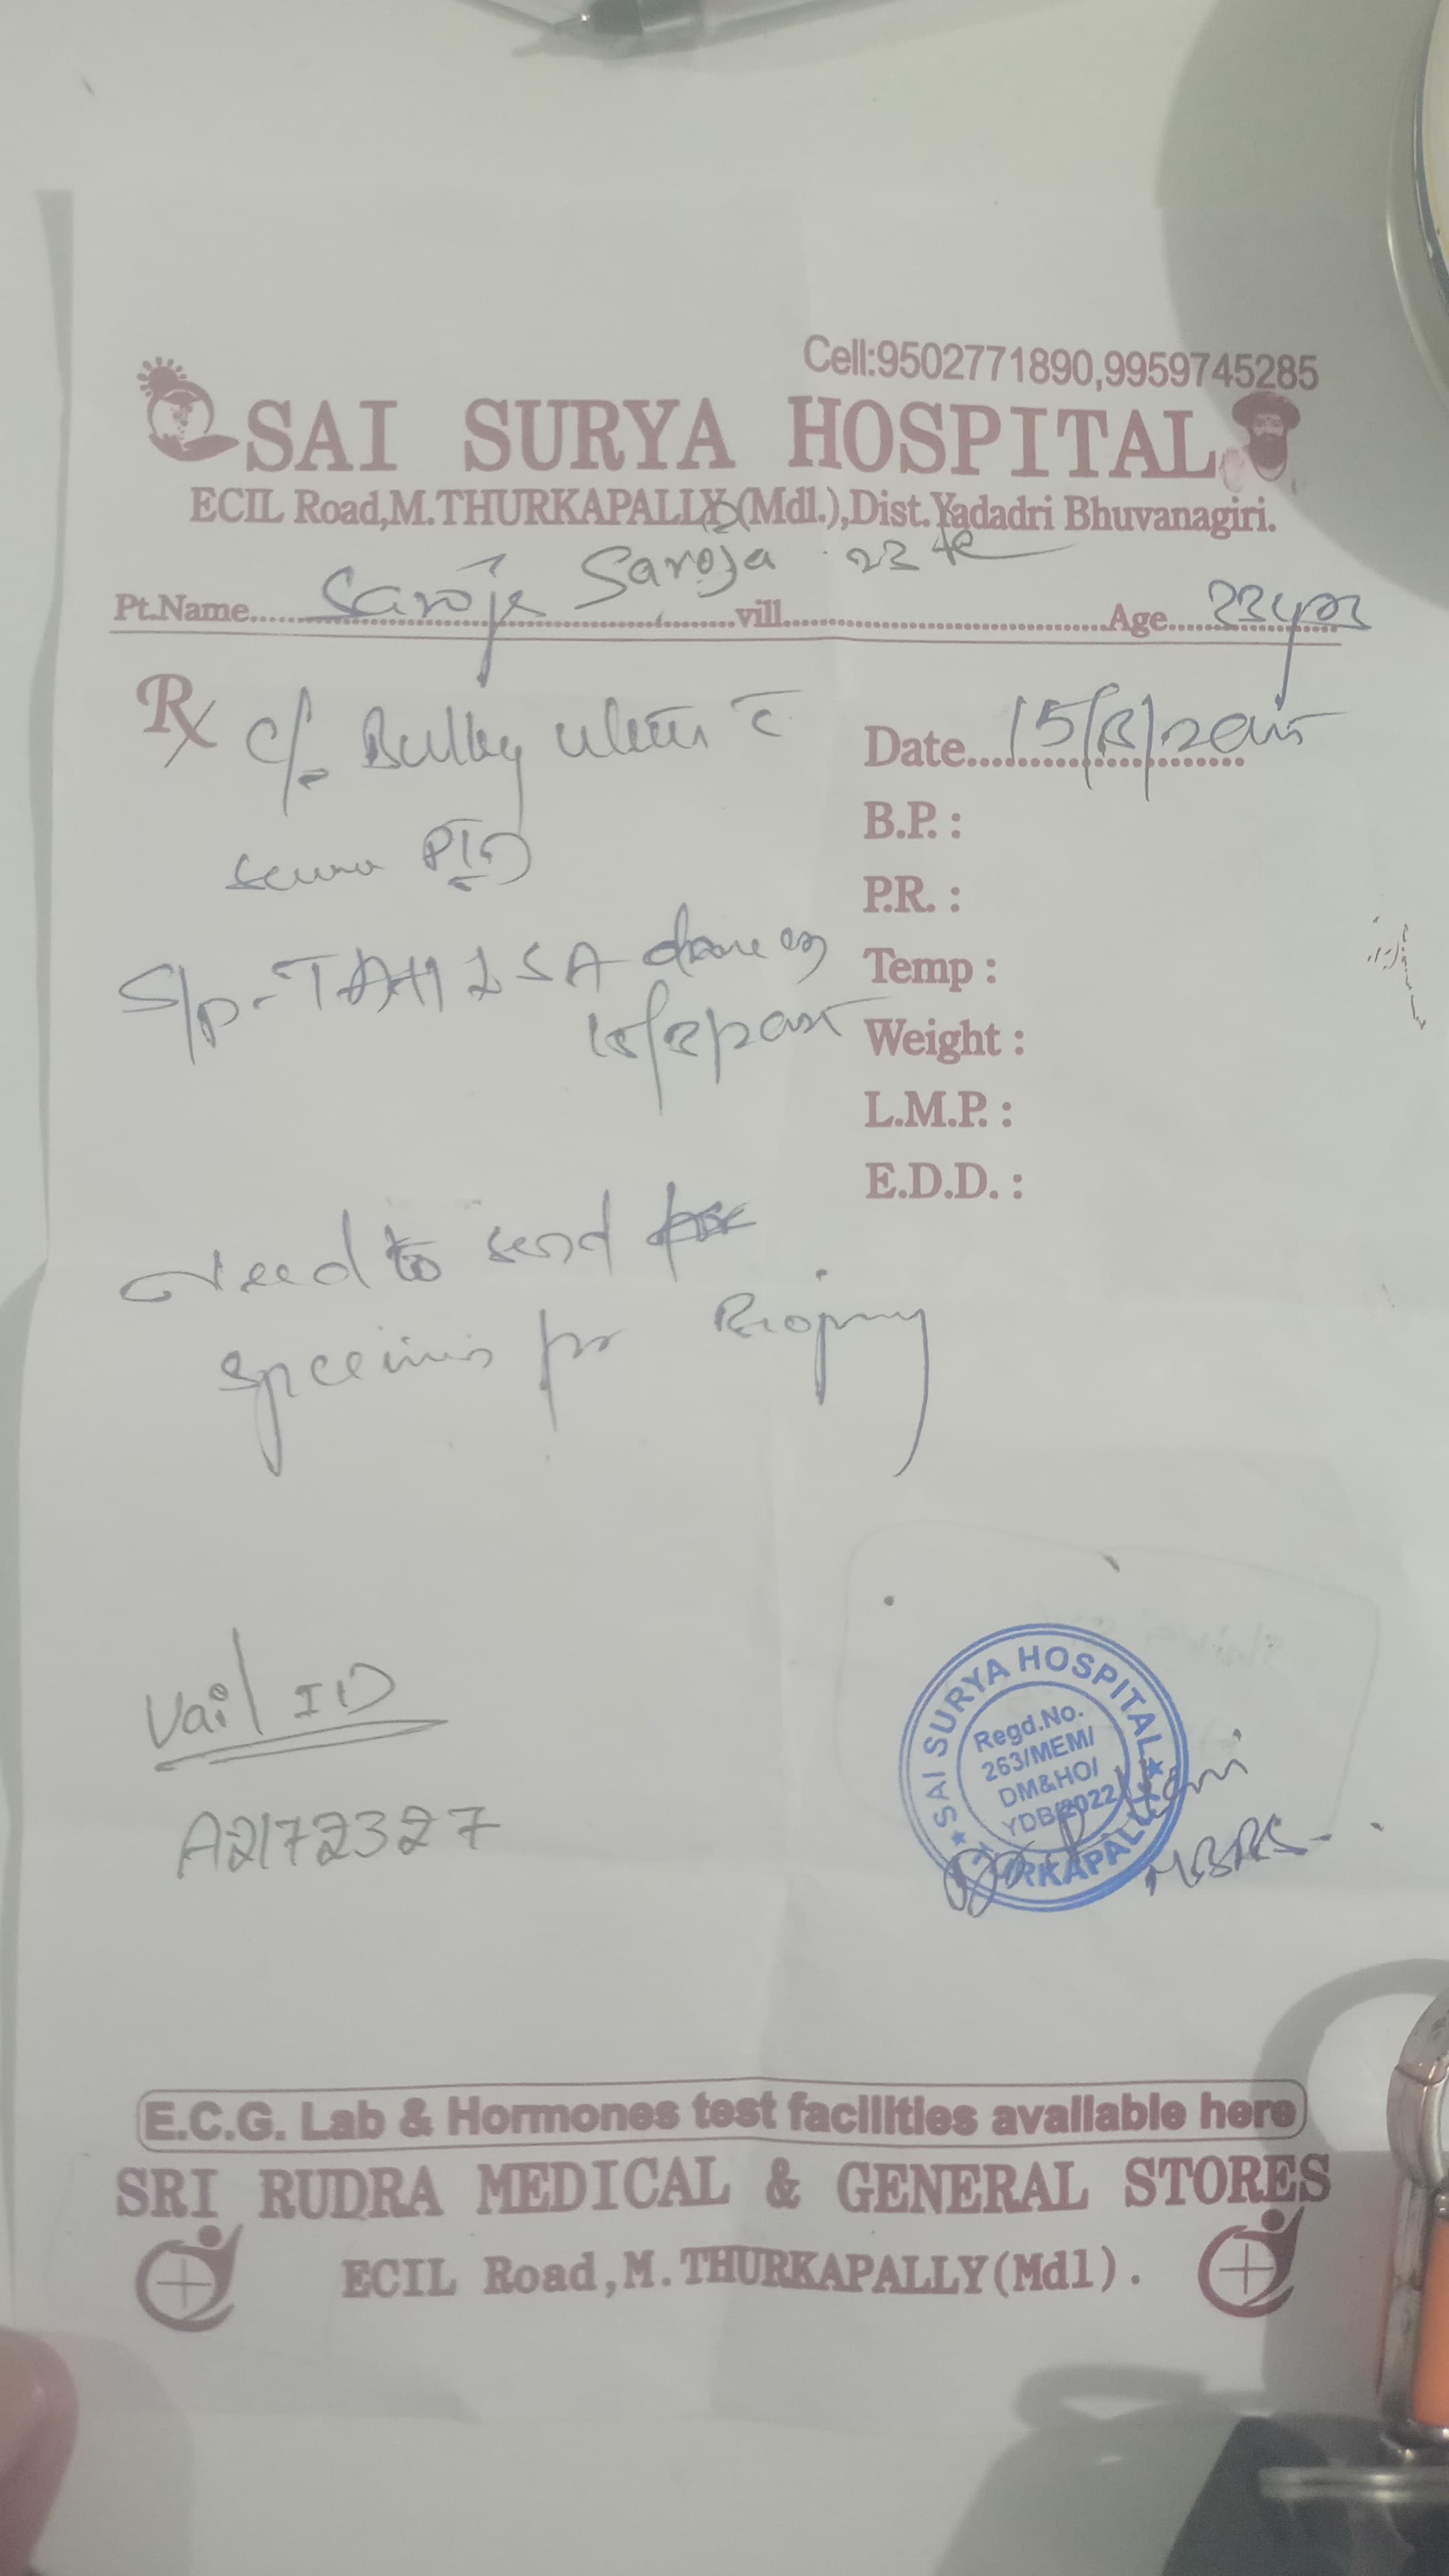 Cell:9502771890,9959745285
SAI SURYA HOSPITAL
ECIL Road,M.THURKAPALLY(Mdl.),Dist.Yadadri Bhuvanagiri.
Saroja 23
Pt.Name Saroja vill Age 23 yrs
Rx c/o Bulky uterus c̄
Date 15/8/2025
B.P. :
PID
P.R. :
S/p - TAH done on
Temp :
15/8/2025
Weight :
L.M.P. :
E.D.D. :
need to send
specimen for Biopsy
Vail ID
A2172327
SAI SURYA HOSPITAL
Regd.No.
263/MEM/
DM&HO/
YDB/2022
THURKAPALLY
MBBS
E.C.G. Lab & Hormones test facilities available here
SRI RUDRA MEDICAL & GENERAL STORES
ECIL Road,M.THURKAPALLY(Mdl).